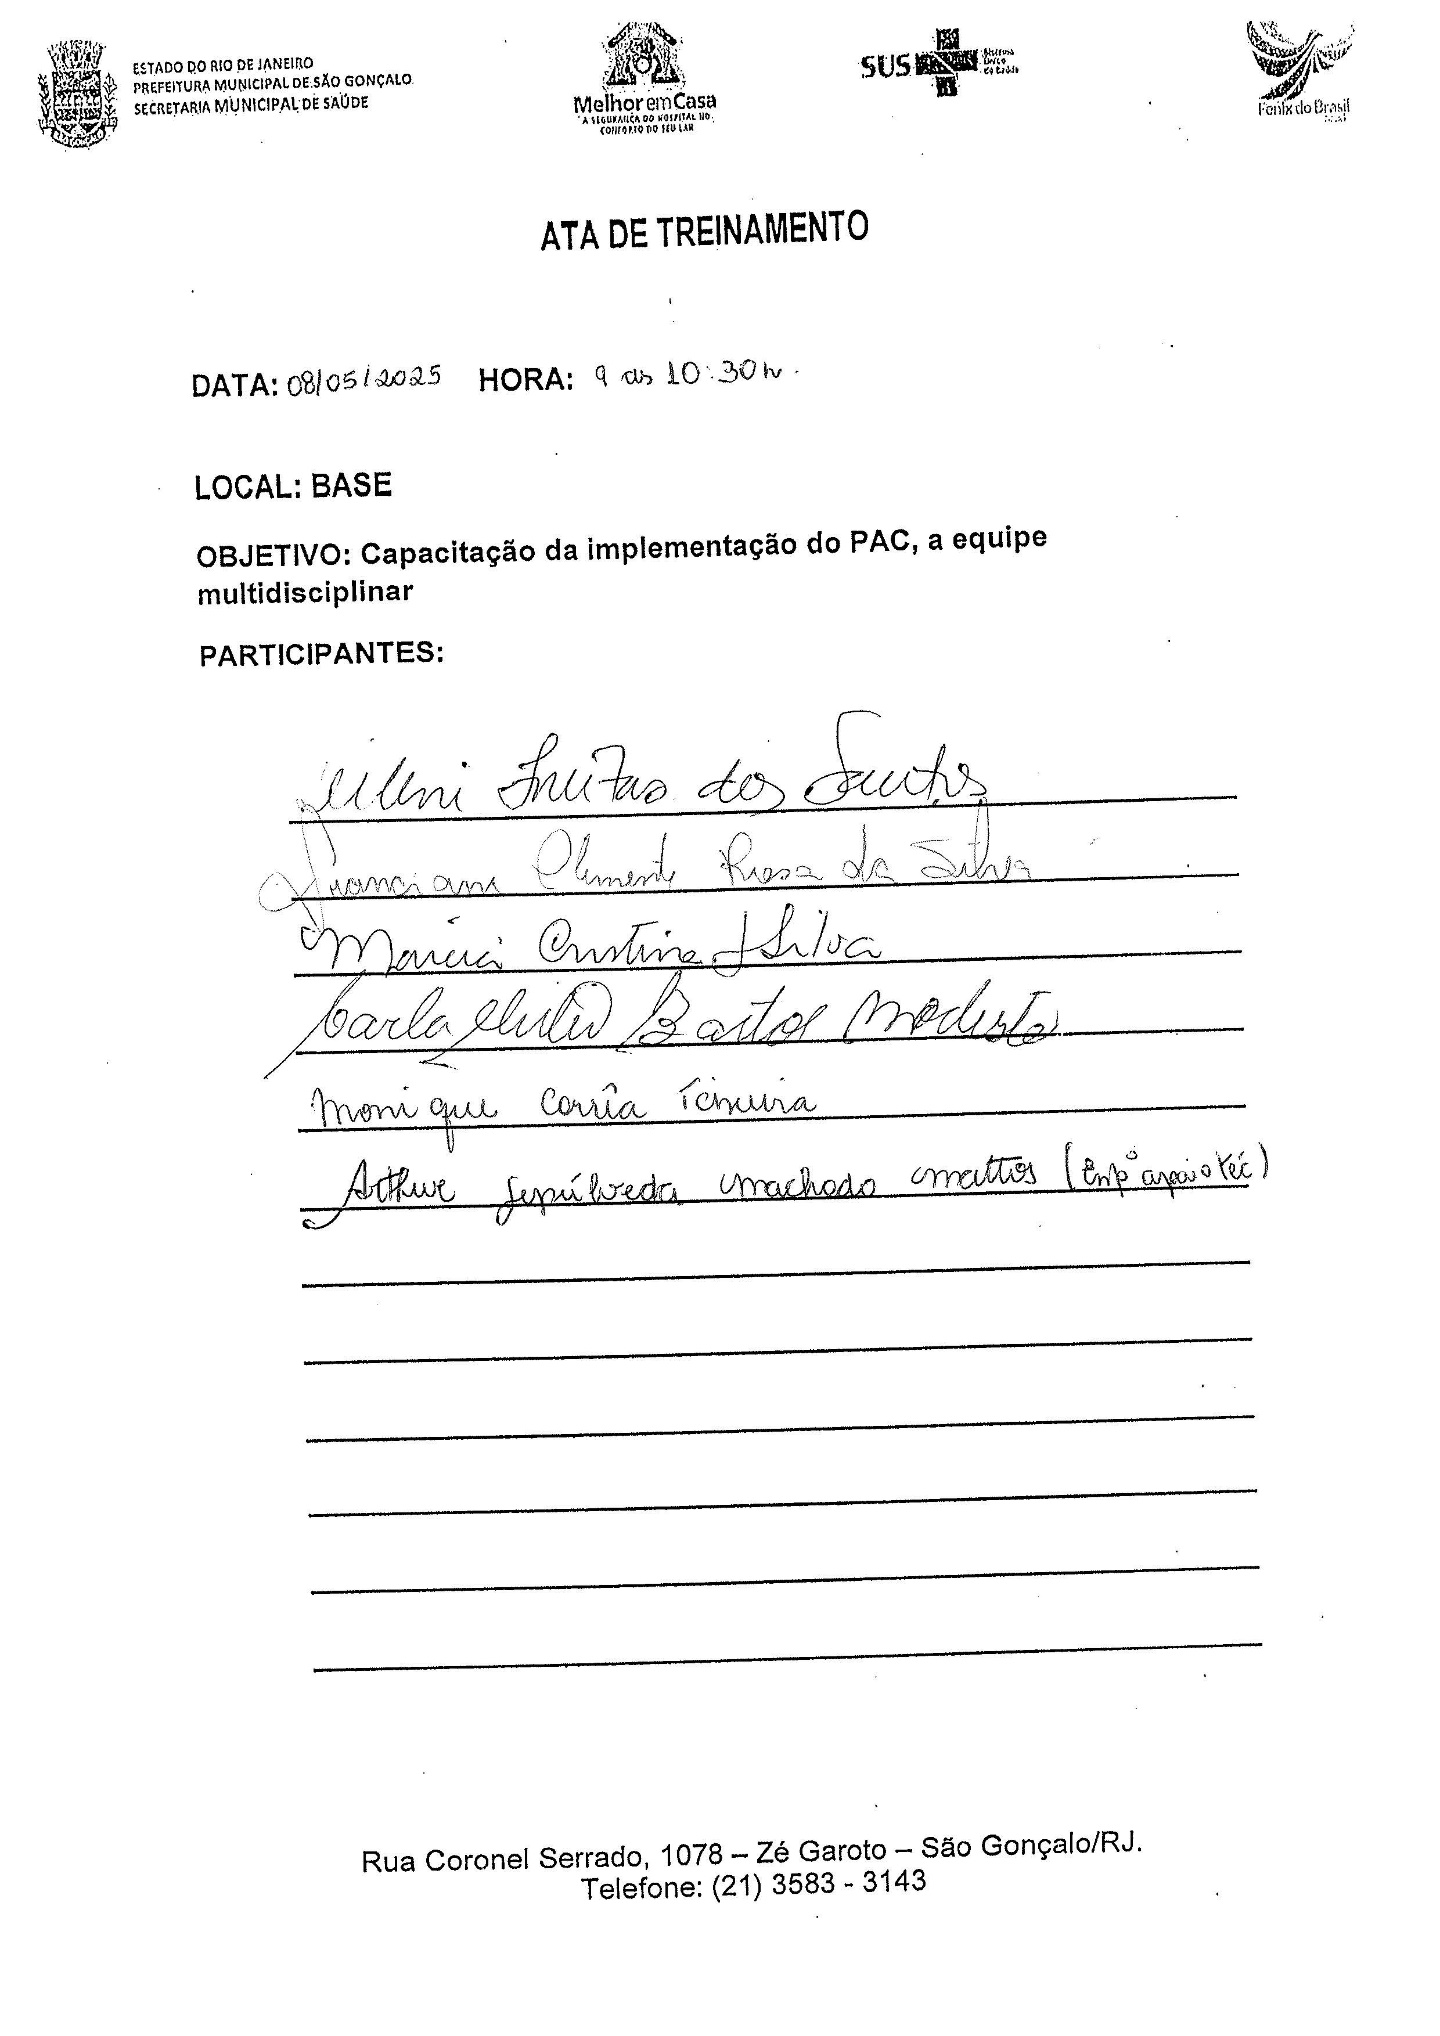 ESTADO DO RIO DE JANEIRO
PREFEITURA MUNICIPAL DE SÃO GONÇALO
SECRETARIA MUNICIPAL DE SAÚDE
Melhor em Casa
A SEGURANÇA DO HOSPITAL NO
CONFORTO DO SEU LAR
SUS
Sistema
Único
de Saúde
Fenix do Brasil
ATA DE TREINAMENTO
DATA: 08/05/2025 HORA: 9 as 10:30h.
LOCAL: BASE
OBJETIVO: Capacitação da implementação do PAC, a equipe
multidisciplinar
PARTICIPANTES:
Freitas dos Santos
Franciani Clemente Rosa da Silva
Marcia Cristina J Silva
Carla Bastos Modesto
Monique Corrêa Teixeira
Arthur Sepúlveda Machado Mattos (
Rua Coronel Serrado, 1078 – Zé Garoto – São Gonçalo/RJ.
Telefone: (21) 3583 - 3143